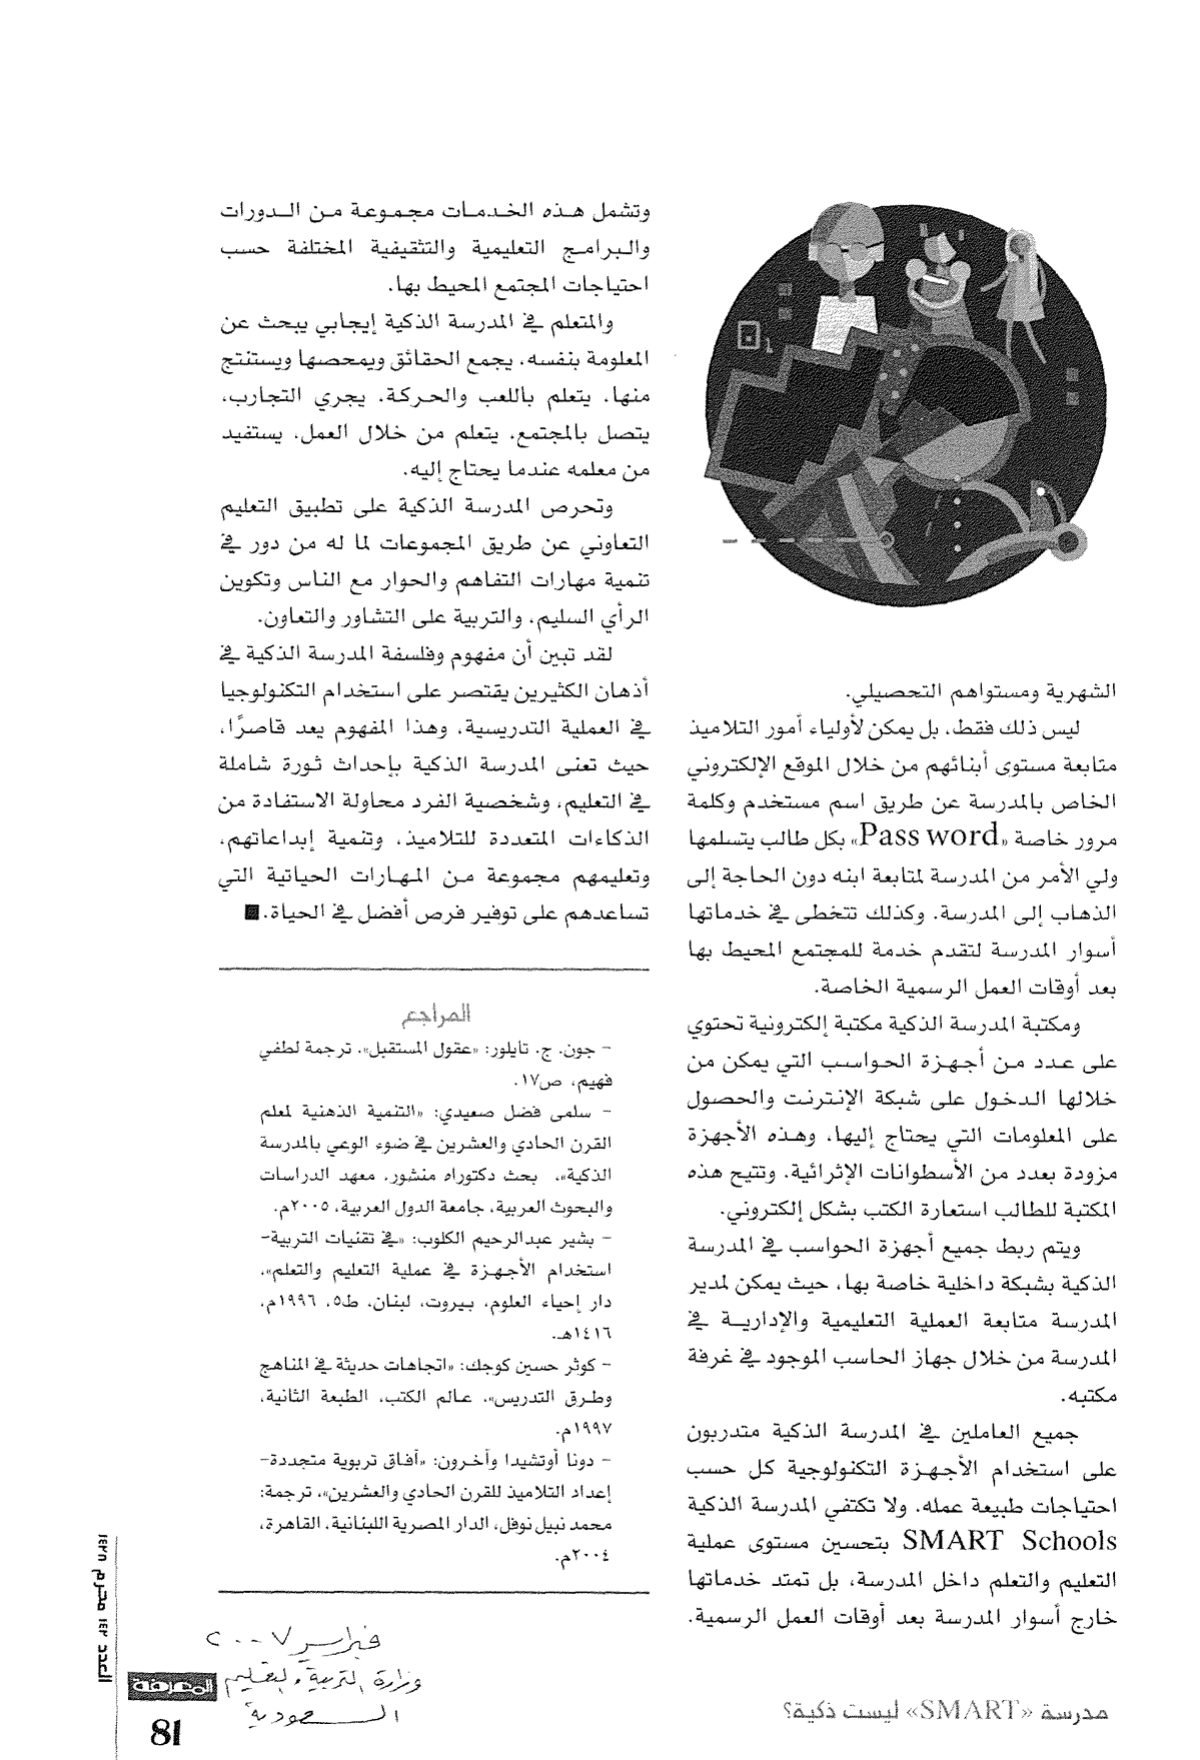 الشهرية ومستواهم التحصيلي.
ليس ذلك فقط، بل يمكن لأولياء أمور التلاميذ
متابعة مستوى أبنائهم من خلال الموقع الإلكتروني
الخاص بالمدرسة عن طريق اسم مستخدم وكلمة
مرور خاصة «Pass word» بكل طالب يتسلمها
ولي الأمر من المدرسة لمتابعة ابنه دون الحاجة إلى
الذهاب إلى المدرسة. وكذلك تتخطى في خدماتها
أسوار المدرسة لتقدم خدمة للمجتمع المحيط بها
بعد أوقات العمل الرسمية الخاصة.
ومكتبة المدرسة الذكية مكتبة إلكترونية تحتوي
على عدد من أجهزة الحواسب التي يمكن من
خلالها الدخول على شبكة الإنترنت والحصول
على المعلومات التي يحتاج إليها، وهذه الأجهزة
مزودة بعدد من الأسطوانات الإثرائية. وتتيح هذه
المكتبة للطالب استعارة الكتب بشكل إلكتروني.
ويتم ربط جميع أجهزة الحواسب في المدرسة
الذكية بشبكة داخلية خاصة بها، حيث يمكن لمدير
المدرسة متابعة العملية التعليمية والإدارية في
المدرسة من خلال جهاز الحاسب الموجود في غرفة
مكتبه.
جميع العاملين في المدرسة الذكية متدربون
على استخدام الأجهزة التكنولوجية كل حسب
احتياجات طبيعة عمله. ولا تكتفي المدرسة الذكية
SMART Schools بتحسين مستوى عملية
التعليم والتعلم داخل المدرسة، بل تمتد خدماتها
خارج أسوار المدرسة بعد أوقات العمل الرسمية.
وتشمل هذه الخدمات مجموعة من الدورات
والبرامج التعليمية والتثقيفية المختلفة حسب
احتياجات المجتمع المحيط بها.
والمتعلم في المدرسة الذكية إيجابي يبحث عن
المعلومة بنفسه، يجمع الحقائق ويمحصها ويستنتج
منها، يتعلم باللعب والحركة، يجري التجارب،
يتصل بالمجتمع، يتعلم من خلال العمل، يستفيد
من معلمه عندما يحتاج إليه.
وتحرص المدرسة الذكية على تطبيق التعليم
التعاوني عن طريق المجموعات لما له من دور في
تنمية مهارات التفاهم والحوار مع الناس وتكوين
الرأي السليم، والتربية على التشاور والتعاون.
لقد تبين أن مفهوم وفلسفة المدرسة الذكية في
أذهان الكثيرين يقتصر على استخدام التكنولوجيا
في العملية التدريسية، وهذا المفهوم يعد قاصرًا،
حيث تعنى المدرسة الذكية بإحداث ثورة شاملة
في التعليم، وشخصية الفرد محاولة الاستفادة من
الذكاءات المتعددة للتلاميذ، وتنمية إبداعاتهم،
وتعليمهم مجموعة من المهارات الحياتية التي
تساعدهم على توفير فرص أفضل في الحياة.
المراجع
- جون. ج. تايلور: «عقول المستقبل»، ترجمة لطفي
فهيم، ص١٧.
- سلمى فضل صعيدي: «التنمية الذهنية لمعلم
القرن الحادي والعشرين في ضوء الوعي بالمدرسة
الذكية»، بحث دكتوراه منشور، معهد الدراسات
والبحوث العربية، جامعة الدول العربية، ٢٠٠٥م.
- بشير عبدالرحيم الكلوب: «في تقنيات التربية-
استخدام الأجهزة في عملية التعليم والتعلم»،
دار إحياء العلوم، بيروت، لبنان، ط٥، ١٩٩٦م،
١٤١٦هـ.
- كوثر حسين كوجك: «اتجاهات حديثة في المناهج
وطرق التدريس»، عالم الكتب، الطبعة الثانية،
١٩٩٧م.
- دونا أوتشيدا وآخرون: «آفاق تربوية متجددة-
إعداد التلاميذ للقرن الحادي والعشرين»، ترجمة:
محمد نبيل نوفل، الدار المصرية اللبنانية، القاهرة،
٢٠٠٤م.
فبراير ٢٠٠٧
وزارة التربية والتعليم
السعودية
المعرفة
81
العدد ١٤٣ محرم ١٤٢٨
مدرسة «SMART» ليست ذكية؟